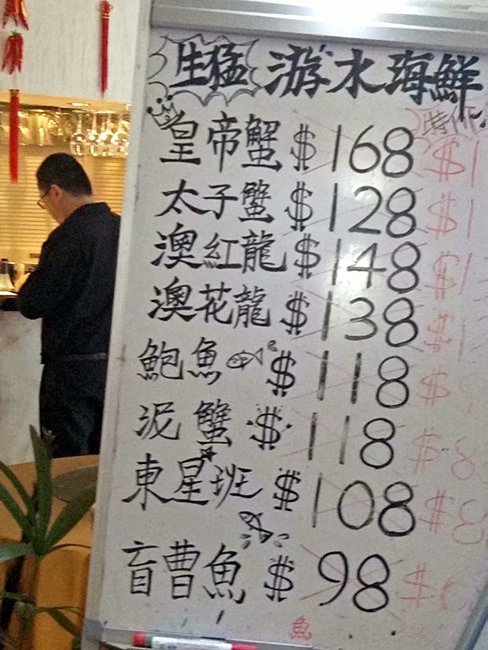 生猛 游水海鮮
特價
皇帝蟹 $168 $1
太子蟹 $128 $1
澳紅龍 $148 $1
澳花龍 $138 $1
鮑魚 $118 $
泥蟹 $118 $8
東星班 $108 $8
盲曹魚 $98 $
魚